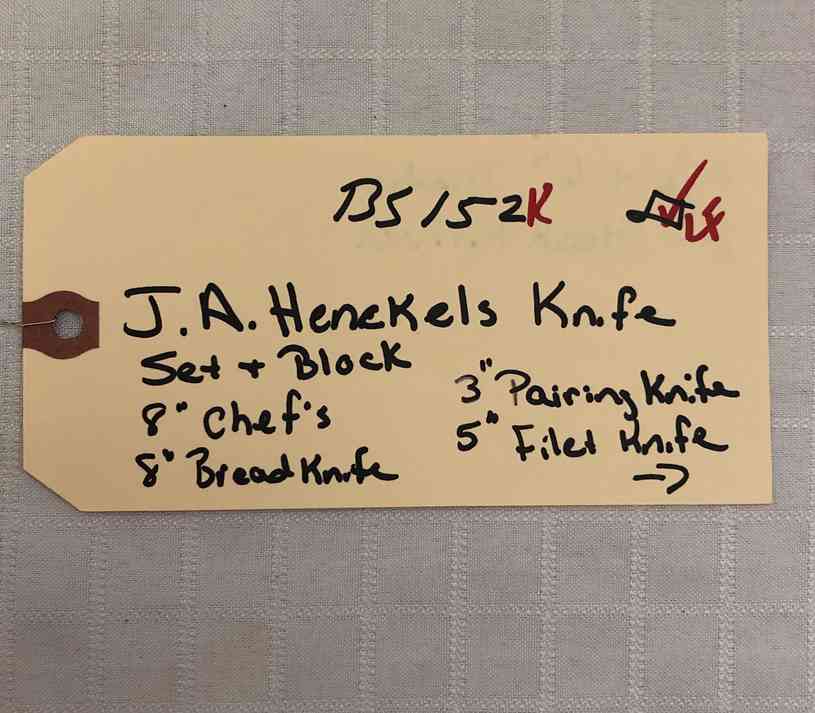 BS152K
J.A. Henckels Knife
Set + Block
8" Chef's
8" Bread Knife
3" Pairing Knife
5" Filet Knife
→